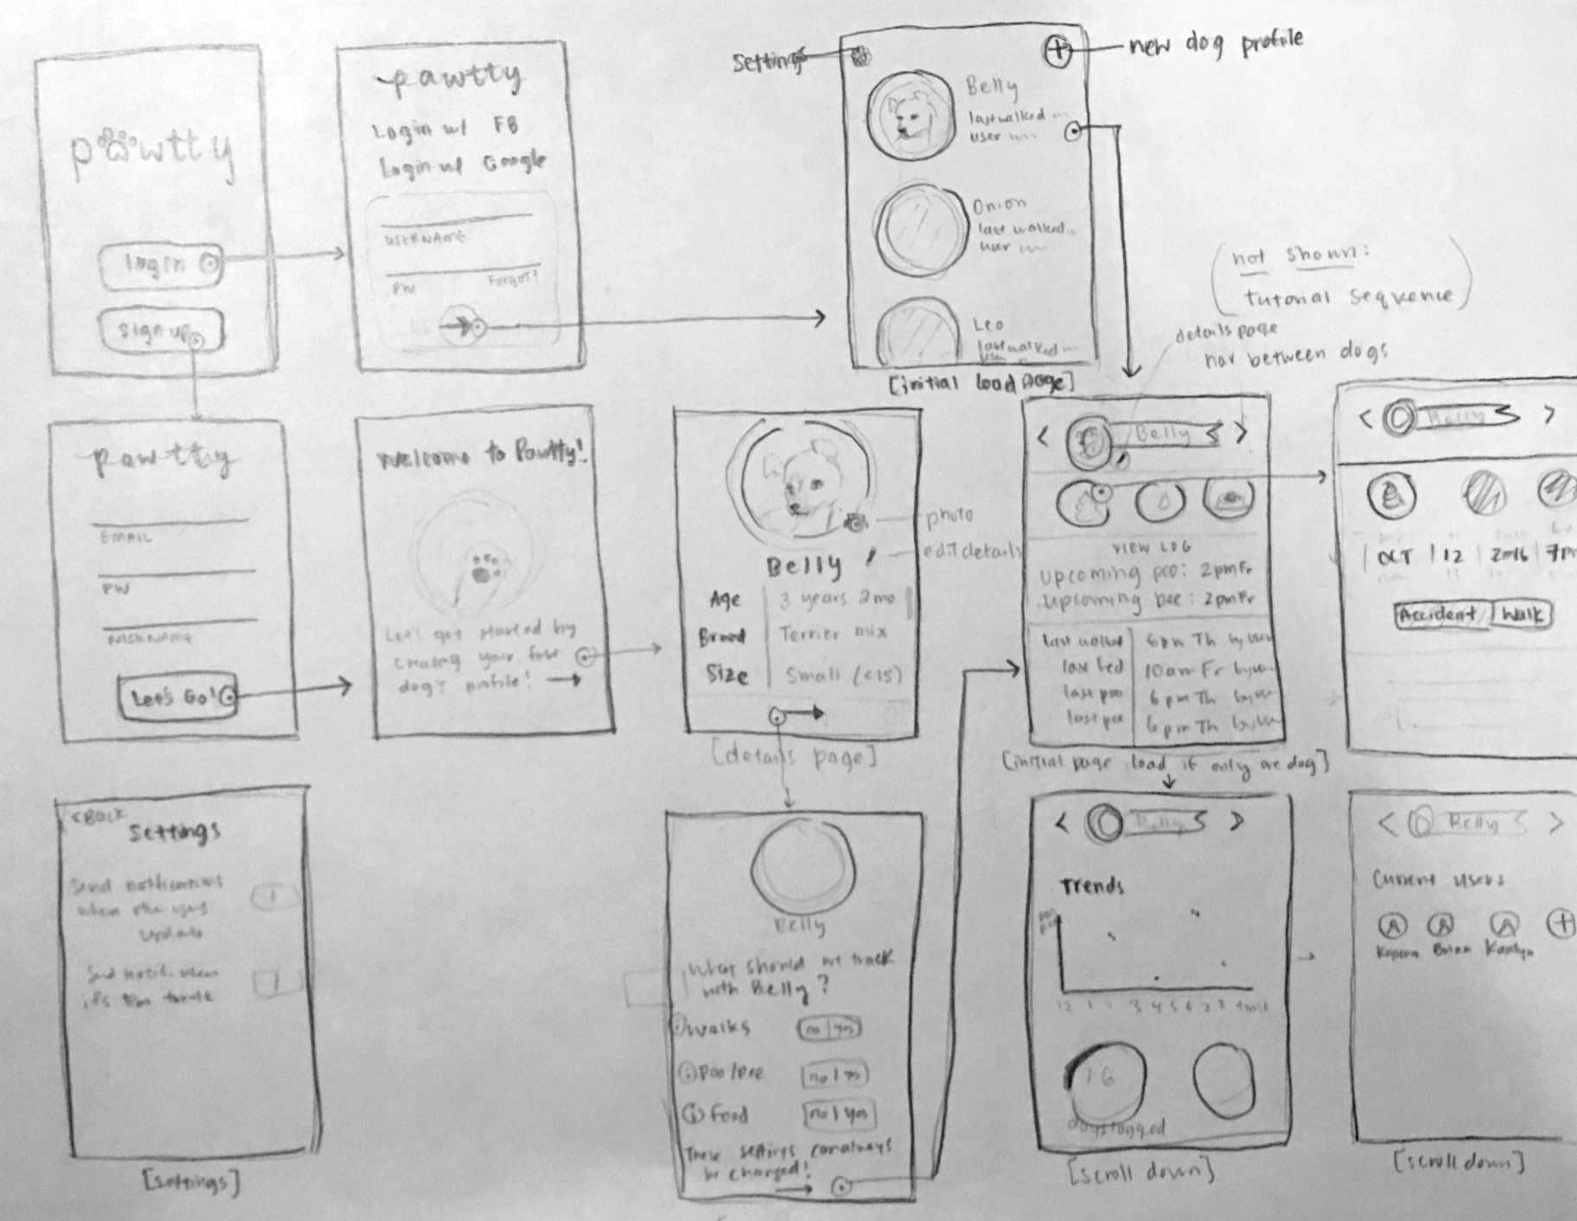 pawtty
login
sign up
pawtty
Login w/ FB
Login w/ Google
USERNAME
PW
Forgot?
Settings
new dog profile
Belly
last walked
user
Onion
last walked
user
Leo
last walked
[initial load page]
(not shown:
tutorial sequence)
details page
nav between dogs
pawtty
EMAIL
PW
NICKNAME
Let's Go!
Welcome to Pawtty!
Let's get started by
creating your first
dog's profile!
photo
edit details
Belly
Age 3 years 2mo
Breed Terrier mix
Size Small (<15)
[details page]
< Belly >
VIEW LOG
upcoming poo: 2pm Fr
upcoming pee: 2pm Fr
last walked 6pm Th by user
last fed 10am Fr by
last poo 6pm Th by
last pee 6pm Th by
[initial page load if only one dog]
< Belly >
OCT | 12 | 2016 | 7pm
Accident / Walk
<BACK
Settings
Send notifications
when other users
update
Send notif. when
it's time to walk
[settings]
Belly
What should we track
with Belly?
walks no | yes
poo/pee no | yes
food no | yes
These settings can always
be changed!
< Belly >
Trends
16
days logged
[scroll down]
< Belly >
Current users
Brian
Kaitlyn
[scroll down]